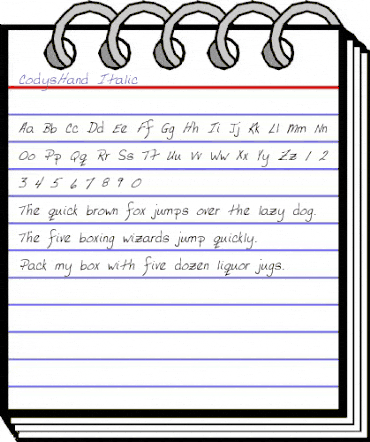 CodysHand Italic
Aa Bb Cc Dd Ee Ff Gg Hh Ii Jj Kk Ll Mm Nn
Oo Pp Qq Rr Ss Tt Uu Vv Ww Xx Yy Zz 1 2
3 4 5 6 7 8 9 0
The quick brown fox jumps over the lazy dog.
The five boxing wizards jump quickly.
Pack my box with five dozen liquor jugs.